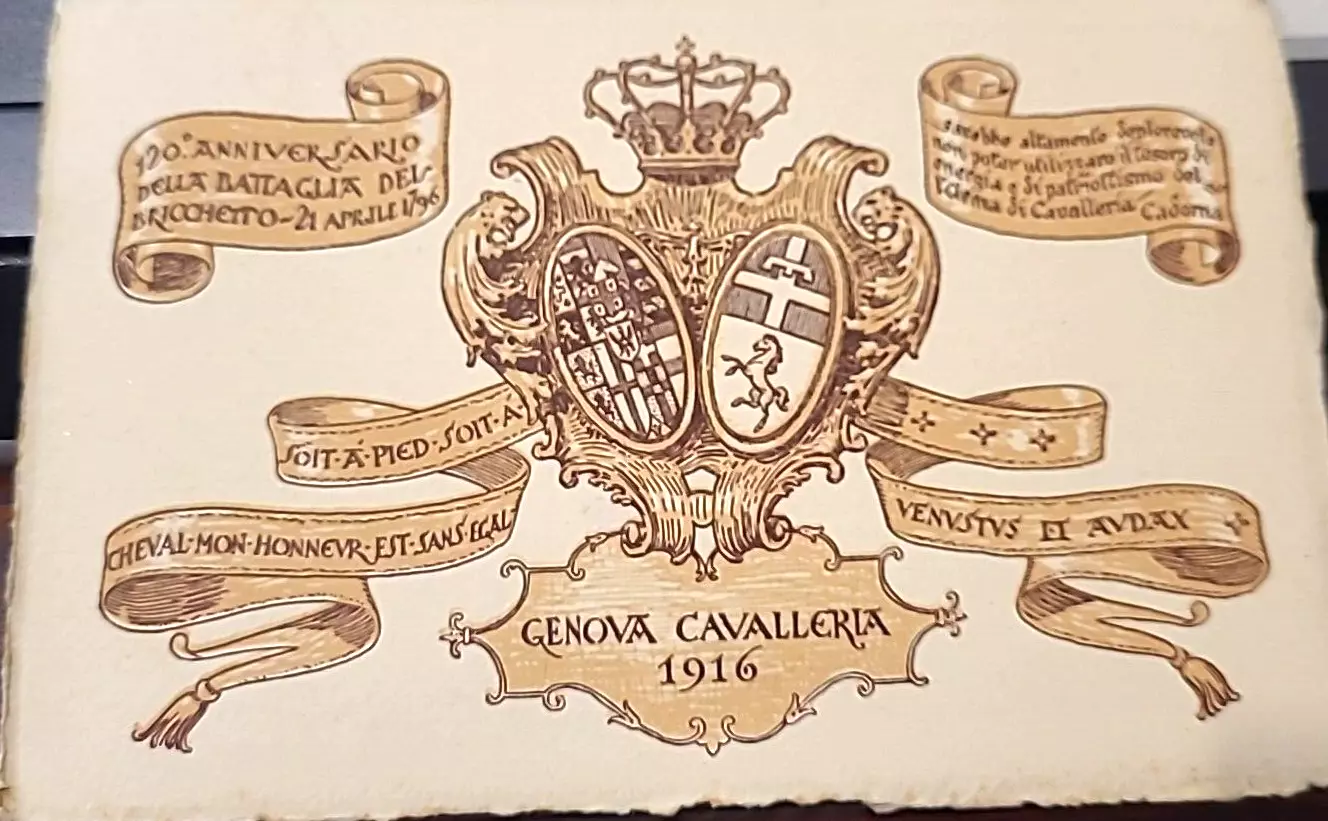 120.º ANNIVERSARIO
DELLA BATTAGLIA DEL
BRICCHETTO-21 APRILE 1796
sarebbe altamente deplorevole
non poter utilizzare il tesoro di
energia e di patriottismo del
l'Arma di Cavalleria Cadorna
SOIT·À·PIED·SOIT·A·
CHEVAL·MON·HONNEVR·EST·SANS·EGAL
VENVSTVS ET AVDAX
GENOVA CAVALLERIA
1916